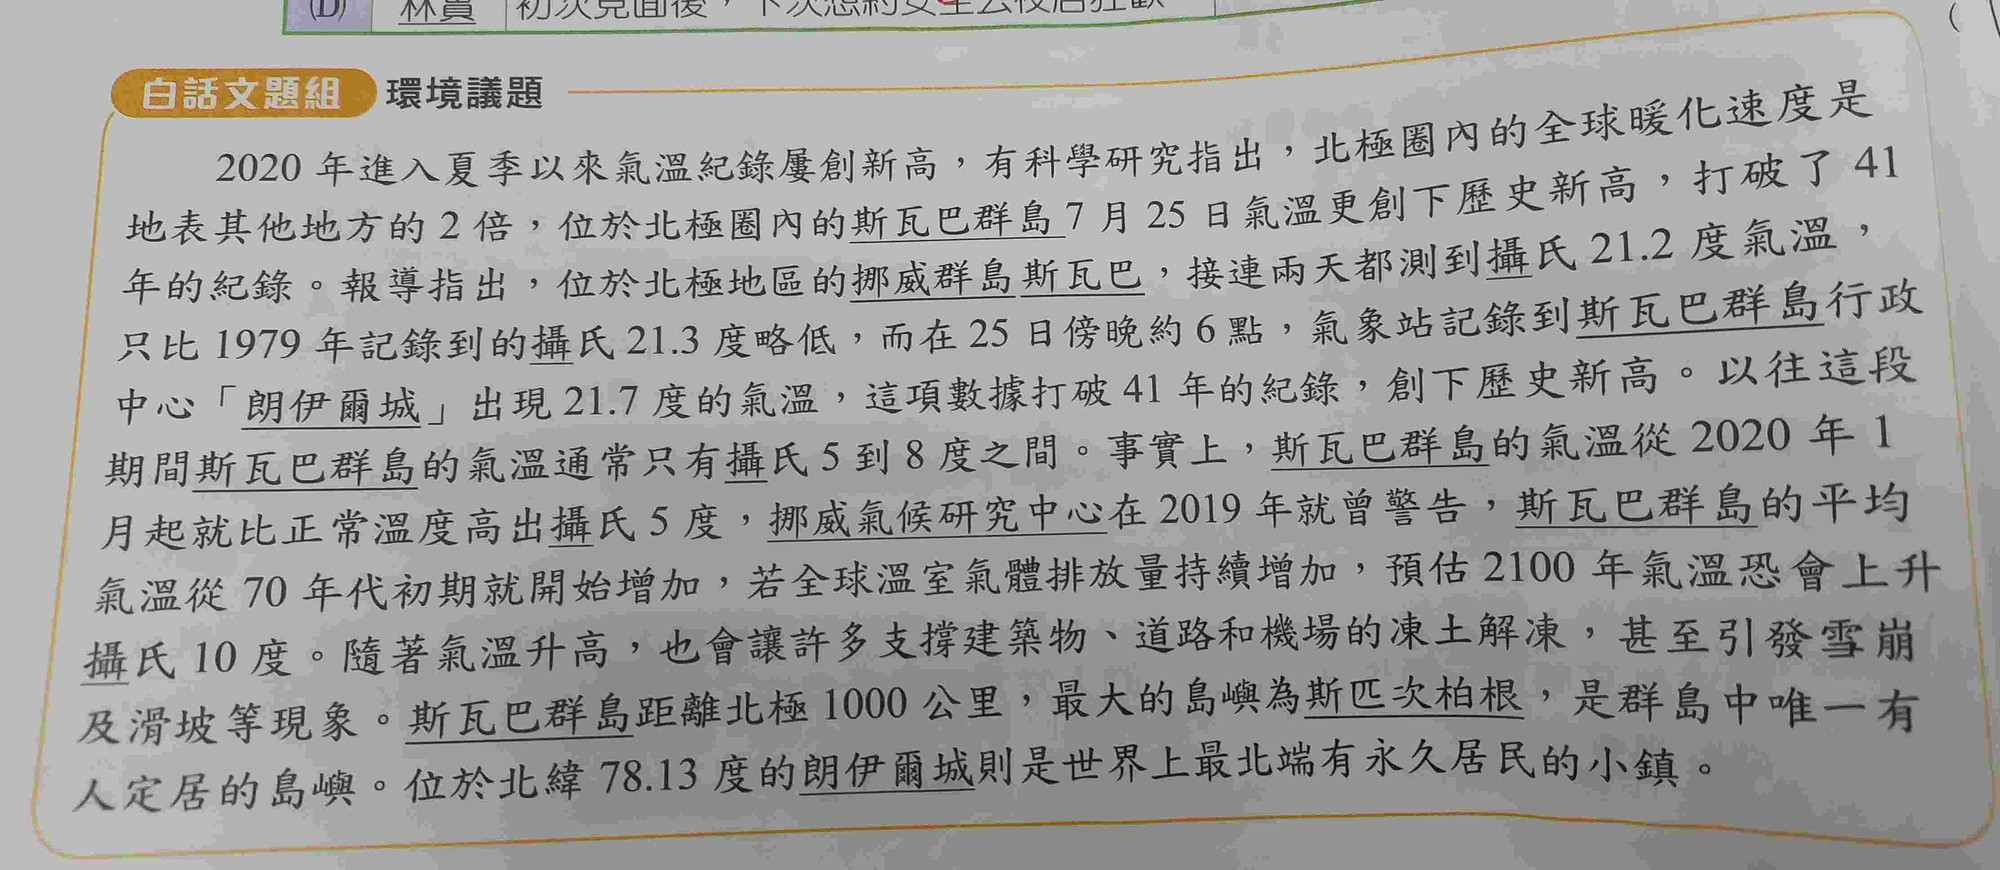 (D) 林賓 初次見面後，下次想約女
白話文題組 環境議題
2020 年進入夏季以來氣溫紀錄屢創新高，有科學研究指出，北極圈內的全球暖化速度是
地表其他地方的 2 倍，位於北極圈內的斯瓦巴群島 7 月 25 日氣溫更創下歷史新高，打破了 41
年的紀錄。報導指出，位於北極地區的挪威群島斯瓦巴，接連兩天都測到攝氏 21.2 度氣溫，
只比 1979 年記錄到的攝氏 21.3 度略低，而在 25 日傍晚約 6 點，氣象站記錄到斯瓦巴群島行政
中心「朗伊爾城」出現 21.7 度的氣溫，這項數據打破 41 年的紀錄，創下歷史新高。以往這段
期間斯瓦巴群島的氣溫通常只有攝氏 5 到 8 度之間。事實上，斯瓦巴群島的氣溫從 2020 年 1
月起就比正常溫度高出攝氏 5 度，挪威氣候研究中心在 2019 年就曾警告，斯瓦巴群島的平均
氣溫從 70 年代初期就開始增加，若全球溫室氣體排放量持續增加，預估 2100 年氣溫恐會上升
攝氏 10 度。隨著氣溫升高，也會讓許多支撐建築物、道路和機場的凍土解凍，甚至引發雪崩
及滑坡等現象。斯瓦巴群島距離北極 1000 公里，最大的島嶼為斯匹次柏根，是群島中唯一有
人定居的島嶼。位於北緯 78.13 度的朗伊爾城則是世界上最北端有永久居民的小鎮。